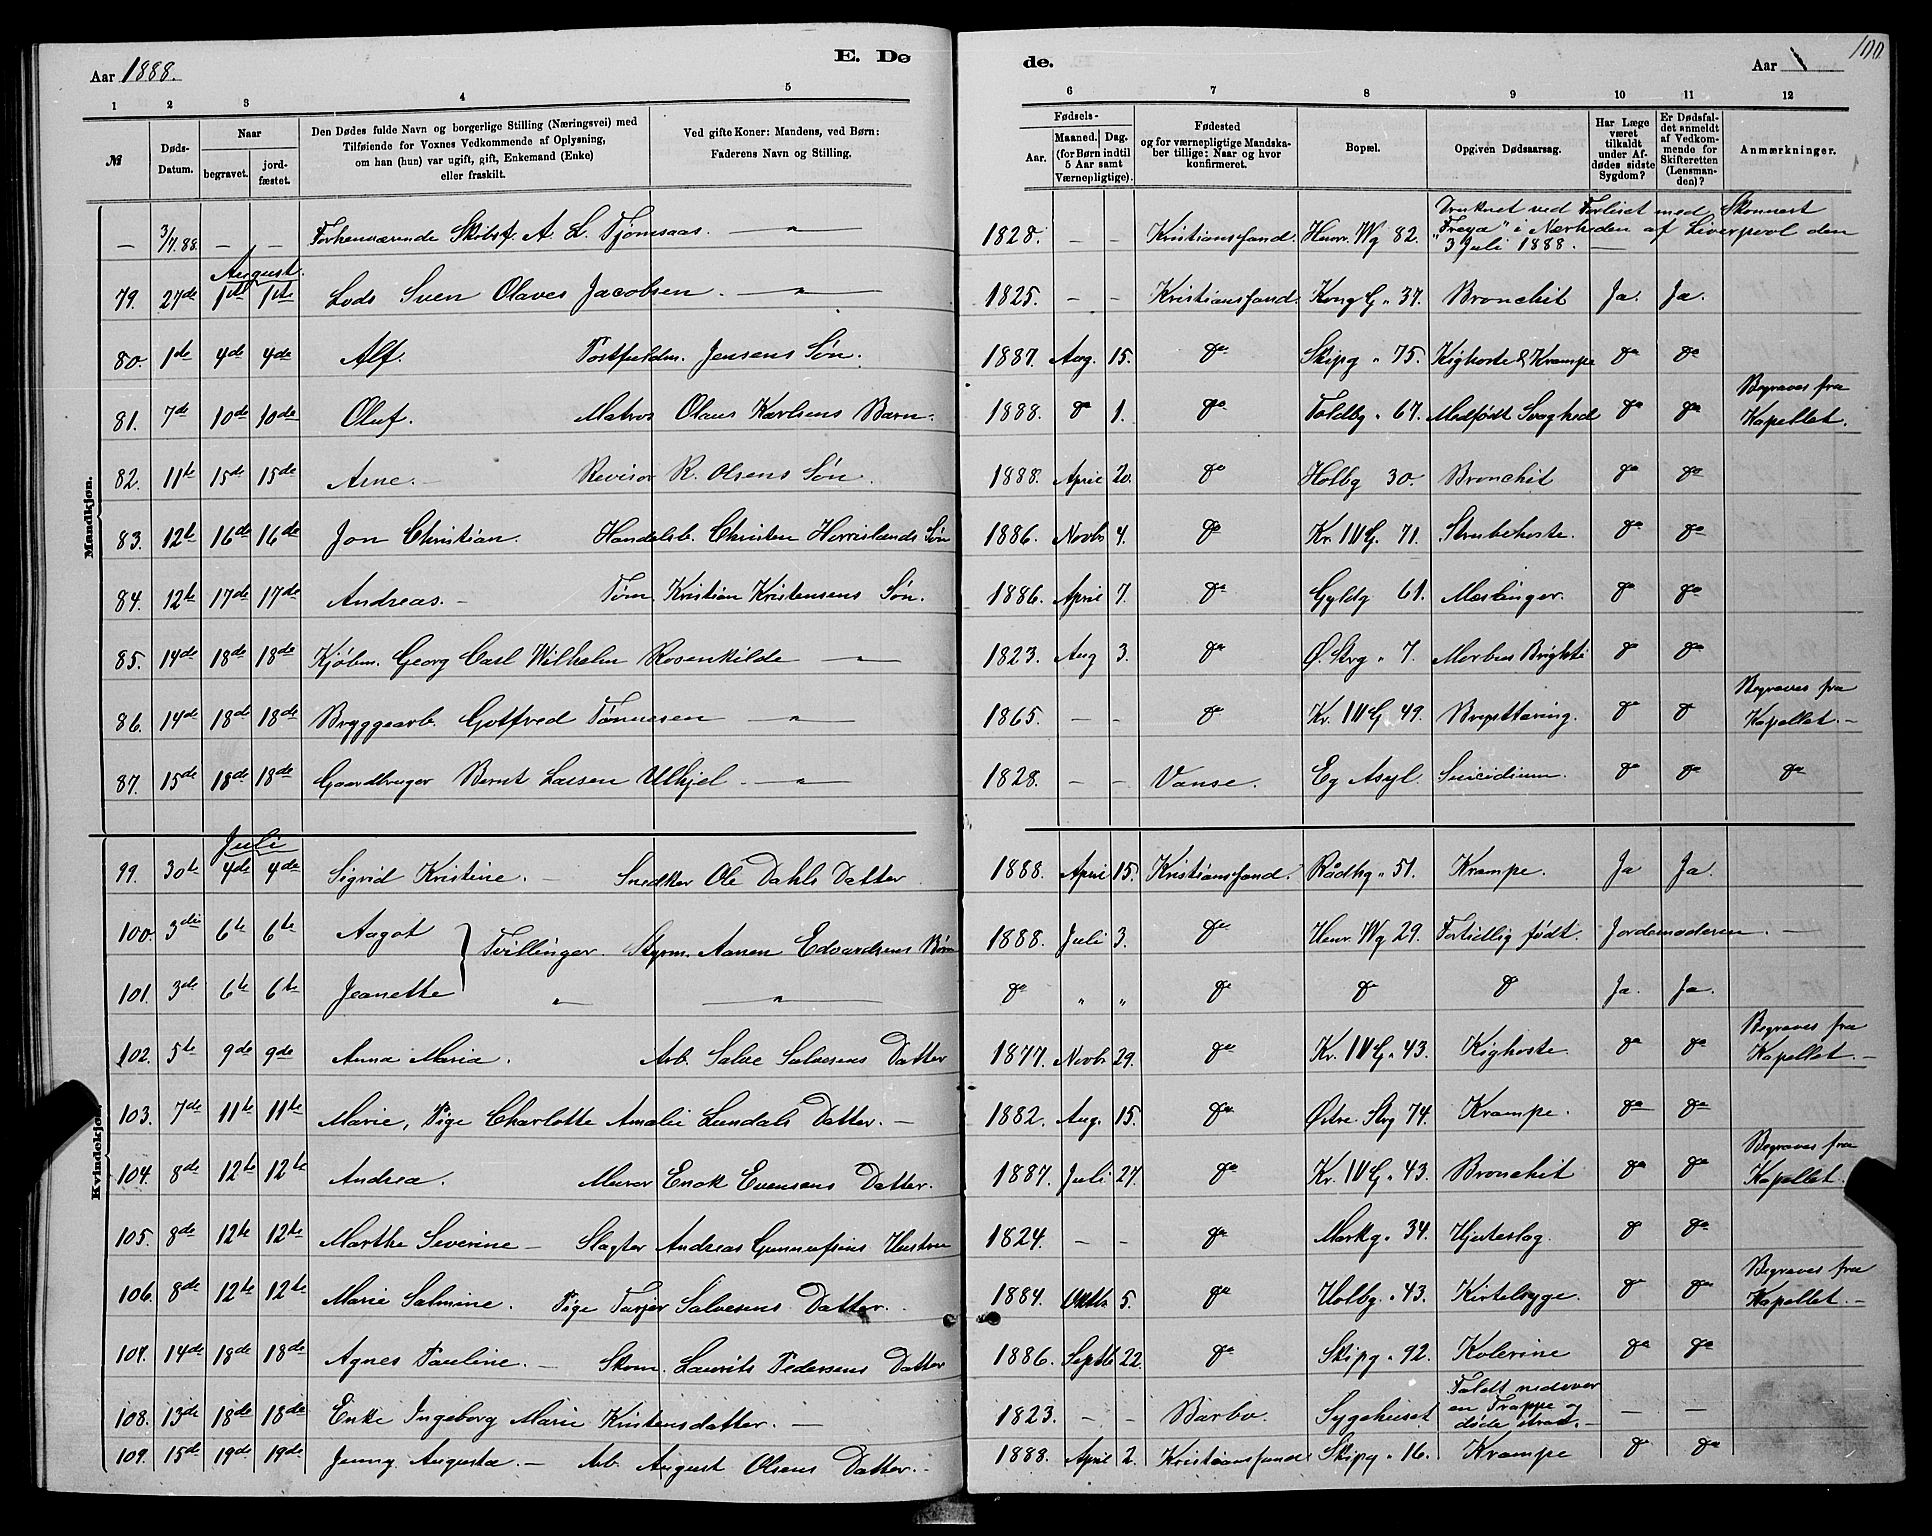 100
Aar 1888.
E. Dø
de.
Aar
1 2 3 4 5 6 7 8 9 10 11 12
№
Døds-Datum.
Naar
begravet.
jord-fæstet.
Den Dødes fulde Navn og borgerlige Stilling (Næringsvei) med
Tilføiende for Voxnes Vedkommende af Oplysning,
om han (hun) var ugift, gift, Enkemand (Enke)
eller fraskilt.
Ved gifte Koner: Mandens, ved Børn:
Faderens Navn og Stilling.
Fødsels-
Aar.
Maaned. Dag.
(for Børn indtil
5 Aar samt
Værnepligtige).
Fødested
og for værnepligtige Mandska-
ber tillige: Naar og hvor
konfirmeret.
Bopæl.
Opgiven Dødsaarsag.
Har Læge
været
tilkaldt
under Af-
dødes sidste
Sygdom?
Er Dødsfal-
det anmeldt
af Vedkom-
mende for
Skifteretten
(Lensman-
den)?
Anmærkninger.
Mandkjøn.
— 3/7.88. — — Forhenværende Skibsf. A. L. Tjomsaas — " — 1828. — — Kristianssand. Henr. Wg 82. Druknet ved Forliset med Skonnert
"Freya" i Nærheden af Liverpool den
3 Juli 1888. —
August.
79. 27de 1ste 1ste Lods Sven Olaves Jacobsen. — " — 1825. — — Kristianssand. Kong G. " 37. Bronchit Ja. Ja.
80. 1ste 4de 4de Alf. Postfuldm. Jensens Søn. 1887. Aug. 15. do Skipg " 75. Kighoste & Krampe do do
81. 7de 10de 10de Oluf. Matros Olaus Karlsens Barn. 1888. do 1. do Toldbg " 67. Medfødt Svaghed do do Begraves fra
Kapellet.
82. 11te 15de 15de Arne. — Revisor R. Olsens Søn. 1888. April 20. do Holbg 30. Bronchit do do
83. 12te 16de 16de Jon Christian. Handelsb. Christen Horrislands Søn 1886. Novbr 4. do Kr. IVG. 71. Strubehoste. do do
84. 12te 17de 17de Andreas. — Tøm. Kristian Kristensens Søn. 1886. April 7. do Gyldg 61. Mæslinger. do do
85. 14de 18de 18de Kjøbm. Georg Carl Wilhelm Rosenkilde — " — 1823. Aug 3. do Ø. Strg " 7. Morbus Brightii do do
86. 14de 18de 18de Bryggearb. Gotfred Tønnesen — " — 1865. — — do Kr. IVG. 49. Brysttæring. do do Begraves fra
Kapellet. —
87. 15de 18de 18de Gaardbruger Bernt Larsen Ulhjel — " — 1828. — — Vanse. Eg Asyl. Suicidium. do do do
Kvindekjøn.
Juli
99. 30te 4de 4de Sigrid Kristine. — Snedker Ole Dahls Datter 1888. April 15. Kristianssand. Rådhg " 51. Krampe. Ja Ja.
100. 3die 6te 6te Aagot } Tvillinger. Styrm. Aanen Edvardsens Børn 1888. Juli 3. do Henr. Wg 29. Fortidlig født. Jordemoderen. —
101. 3die 6te 6te Jeanette " — " — do " " do do do Ja. Ja.
102. 5te 9de 9de Anna Maria. Arb. Salve Salvesens Datter 1877. Novbr 29. do Kr. IVG. " 43. Kighoste. do do Begraves fra
Kapellet. —
103. 7de 11te 11te Marie, Pige Charlotte Amalie Lundals Datter. — 1882. Aug. 15. do Østre. Strg 74. Krampe. do do
104. 8de 12te 12te Andrea. Murer Enok Evensens Datter. 1887. Juli 27. do Kr. IVG. " 43. Bronchit do do Begraves fra
Kapellet.
105. 8de 12te 12te Marthe Severine — Slagter Andreas Gunnufsens Hustru 1824. — — do Markg. " 34. Hjerteslag. do do
106. 8de 12te 12te Marie Salmine. Pige Tarjer Salvesens Datter. 1884. Oktbr 5. do Holbg. " 43. Kirtelsyge. do do Begraves fra
Kapellet. —
107. 14de 18de 18de Agnes Pauline. — Skom. Laurits Pedersens Datter 1886. Septb 22. do Skipg " 92. Kolerine do do
108. 13de 18de 18de Enke Ingeborg Marie Kristensdatter. — 1823. — — Barbo. Sygehuset Faldt nedover
en Trappe og
døde strax. — — —
109. 15de 19de 19de Jenny Augusta. — Arb. August Olsens Datter. — 1888. April 2. Kristianssand Skipg " 16. Krampe do do